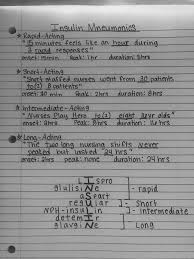 Insulin Mneumonics
* Rapid-Acting
"15 minutes feels like an hour during
3 rapid responses"
onset: 15min peak: 1hr duration: 3hrs
* Short-Acting
"Short staffed nurses went from 30 patients
to (2) 8 patients"
onset: 30 min peak: 2hrs duration: 8hrs
* Intermediate-Acting
"Nurses Play Hero to (2) eight 16yr olds"
onset: 2hrs peak: 8hrs duration: 16hrs
* Long-Acting
"The two long nursing shifts never
peaked but lasted 24 hrs"
onset: 2hrs peak: none duration: 24 hrs
LISpro
glulisiNe - rapid
aSpart
regULar - Short
NPH-insulin - intermediate
detemIr
glargiNe - long